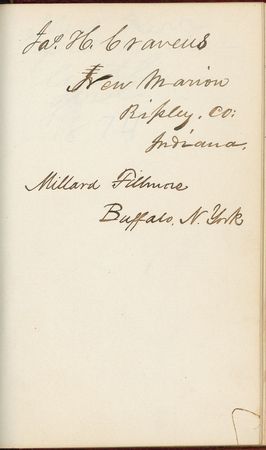 Jas. H. Cravens
New Marion
Ripley. Co:
Indiana.
Millard Fillmore
Buffalo, N. York